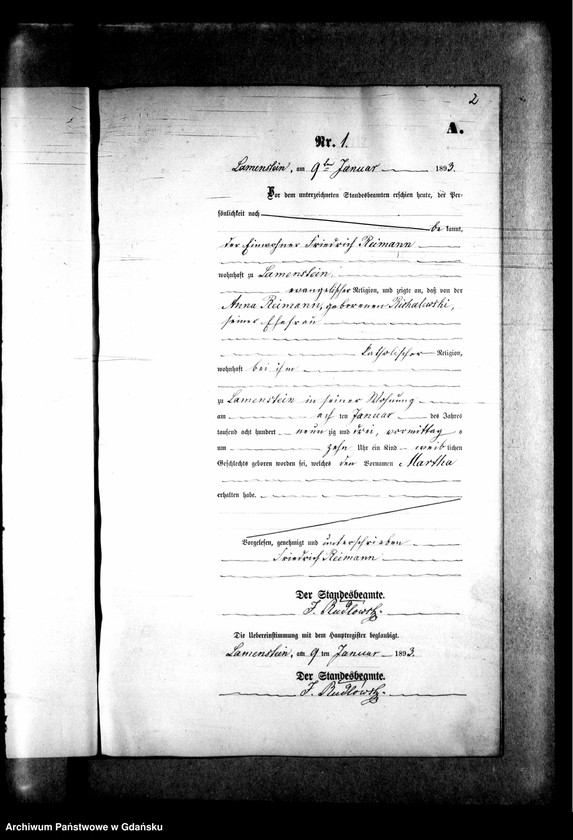 2
A.
Nr. 1.
Lamenstein, am 9ten Januar 1893.
Vor dem unterzeichneten Standesbeamten erschien heute, der Per-
sönlichkeit nach
be kannt,
der Einwohner Friedrich Reimann
wohnhaft zu Lamenstein
evangelischer Religion, und zeigte an, daß von der
Anna Reimann, geborenen Richalewski,
seiner Ehefrau
katholischer Religion,
wohnhaft bei ihm
zu Lamenstein in seiner Wohnung
am acht ten Januar des Jahres
tausend acht hundert neun zig und drei, vormittag s
um zehn Uhr ein Kind weib lichen
Geschlechts geboren worden sei, welches den Vornamen Martha
erhalten habe.
Vorgelesen, genehmigt und unterschrieben
Friedrich Reimann
Der Standesbeamte.
Die Uebereinstimmung mit dem Hauptregister beglaubigt.
Lamenstein, am 9 ten Januar 1893.
Der Standesbeamte.
Archiwum Państwowe w Gdańsku